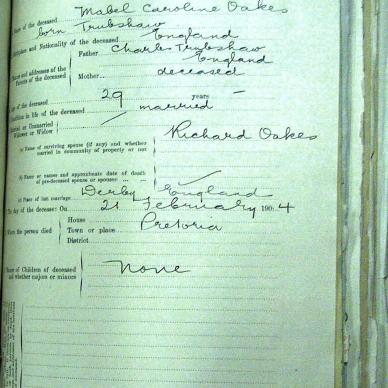 Name of the deceased Mabel Caroline Oakes
born Trubshaw
Birthplace and Nationality of the deceased England
Names and addresses of the parents of the deceased Father Charles Trubshaw
England
Mother deceased
Age of the deceased 29 years
Condition in life of the deceased married
Married or Unmarried
Widower or Widow
(a) Name of surviving spouse (if any) and whether married in community of property or not Richard Oakes
(b) Name or names and approximate date of death of pre-deceased spouse or spouses
(c) Place of last marriage Derby England
The day of the decease: On 21 February 1904
Where the person died House
Town or place Pretoria
District
Names of Children of deceased and whether majors or minors none